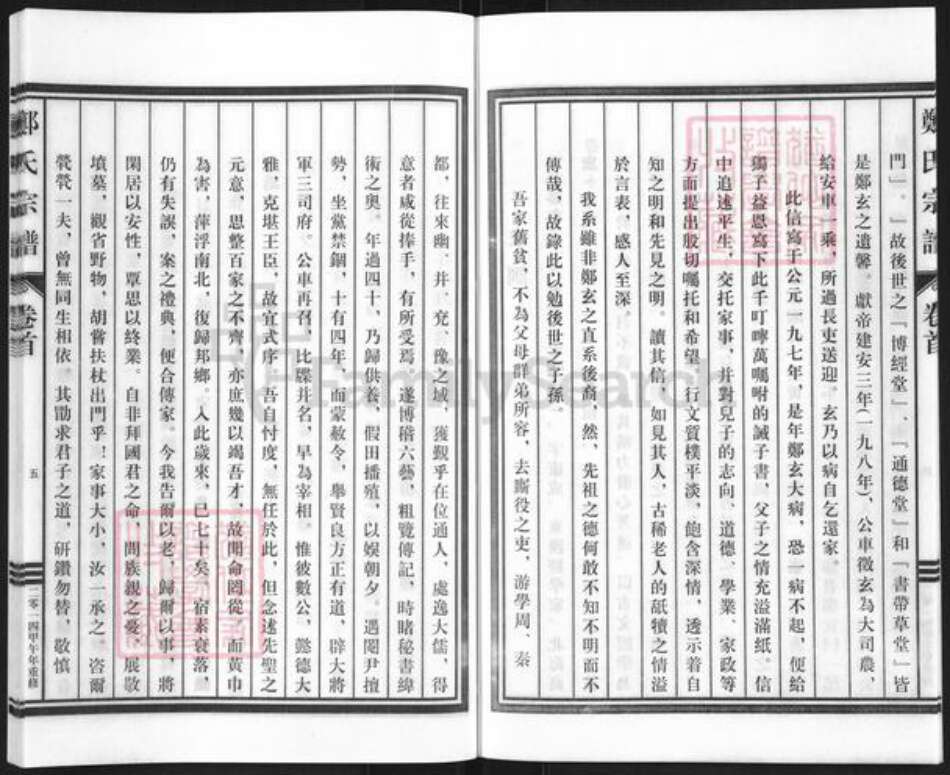 鄭氏宗譜
卷首
門』。』故後世之『博經堂』、『通德堂』和『書帶草堂』皆
是鄭玄之遺馨。獻帝建安三年(一九八年)、公車徵玄為大司農，
給安車一乘，所過長吏送迎。玄乃以病自乞還家。
此信寫于公元一九七年，是年鄭玄大病，恐一病不起，便給
獨子益恩寫下此千叮嚀萬囑咐的誡子書，父子之情充溢滿紙。信
中追述平生，交托家事，并對兒子的志向、道德、學業、家政等
方面提出殷切囑托和希望，行文質樸平淡，飽含深情，透示着自
知之明和先見之明。讀其信，如見其人，古稀老人的舐犢之情溢
於言表，感人至深。
我系雖非鄭玄之直系後裔，然，先祖之德何敢不知不明而不
傳哉，故錄此以勉後世之子孫。
吾家舊貧，不為父母群弟所容，去廝役之吏，游學周、秦
都，往來幽、并、兗、豫之域，獲覲乎在位通人，處逸大儒，得
意者咸從捧手，有所受焉。遂博稽六藝，粗覽傳記，時睹秘書緯
術之奧。年過四十，乃歸供養，假田播殖，以娛朝夕。遇閹尹擅
勢，坐黨禁錮，十有四年，而蒙赦令，舉賢良方正有道，辟大將
軍三司府。公車再召，比牒并名，早為宰相。惟彼數公，懿德大
雅，克堪王臣，故宜式序。吾自忖度，無任於此，但念述先聖之
元意，思整百家之不齊，亦庶幾以竭吾才，故聞命罔從。而黃巾
為害，萍浮南北，復歸邦鄉。入此歲來，已七十矣。宿素衰落，
仍有失誤，案之禮典，便合傳家。今我告爾以老，歸爾以事，將
閑居以安性，覃思以終業。自非拜國君之命，問族親之憂，展敬
墳墓，觀省野物，胡嘗扶杖出門乎！家事大小，汝一承之。咨爾
煢煢一夫，曾無同生相依。其勖求君子之道，研鑽勿替，敬慎
鄭氏宗譜
卷首
五
二零一四甲午年重修
FamilySearch